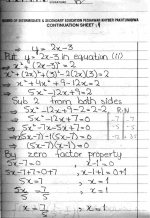 BOARD OF INTERMEDIATE & SECONDARY EDUCATION PESHAWAR KHYBER PAKHTUNKHWA
CONTINUATION SHEET
⇒ y = 2x-3
Put y = 2x-3 in equation (ii)
x² + (2x-3)² = 2
x² + (2x)² + (3)² - 2(2x)(3) = 2
x² + 4x² + 9 - 12x = 2
5x² - 12x + 9 = 2
Sub 2 from both sides
5x² - 12x + 9 - 2 = 2 - 2
5x² - 12x + 7 = 0
5x² - 7x - 5x + 7 = 0
x(5x-7) - 1(5x-7) = 0
(5x-7)(x-1) = 0
By zero factor property
5x-7 = 0 , x-1 = 0
5x-7+7 = 0+7 , x-1+1 = 0+1
5x = 7 , x = 1
5x/5 = 7/5 , x = 1
x = 7/5 , x = 1